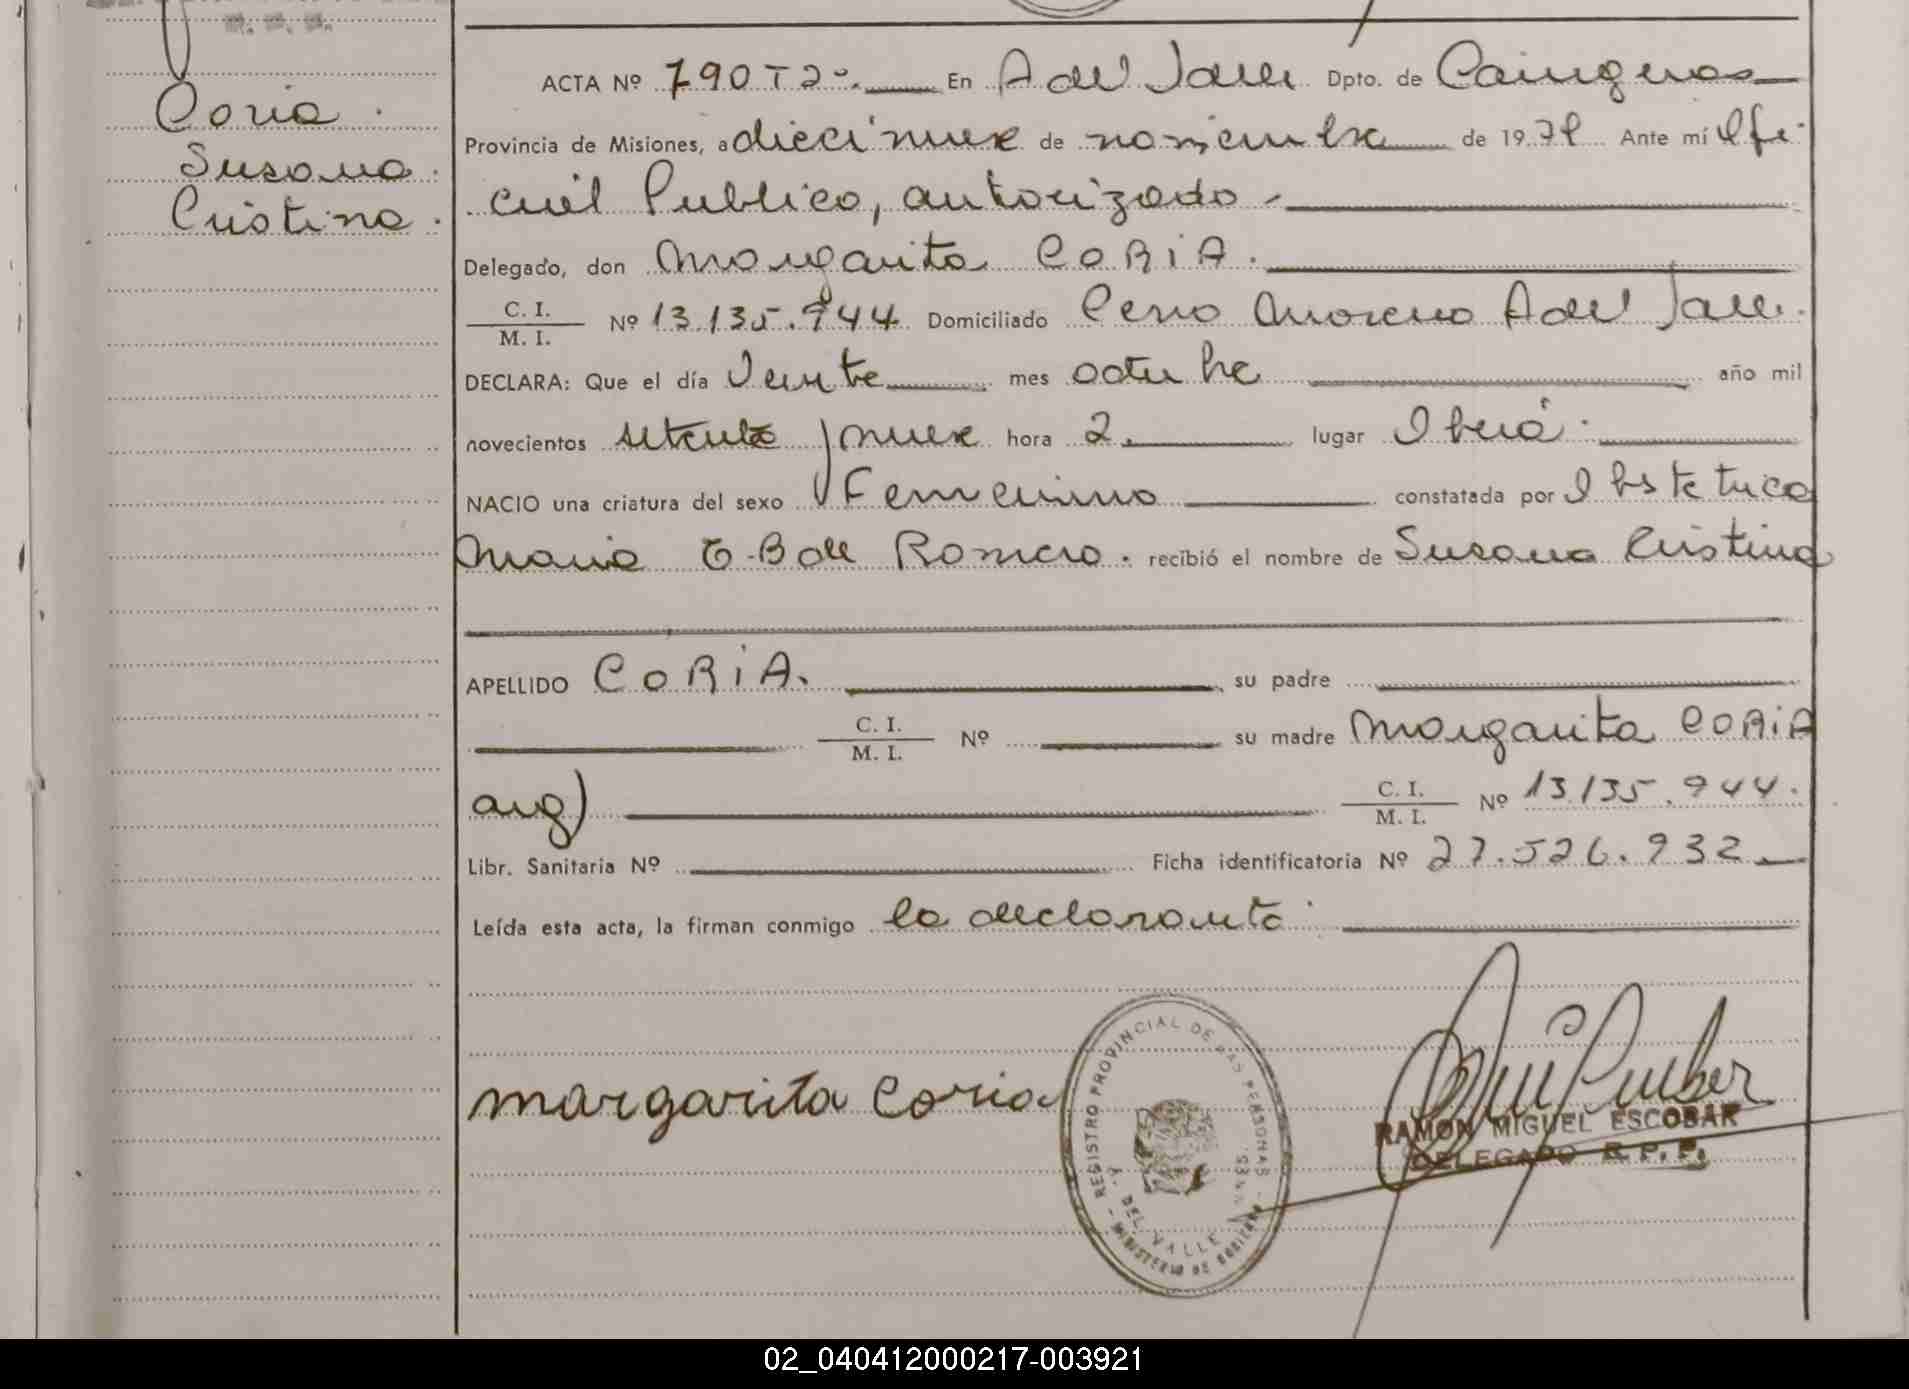 Coria
Susana
Cristina.
ACTA Nº 790 T 2º. En A del Valle Dpto. de Cainguas
Provincia de Misiones, a diecinueve de noviembre de 1979 Ante mí Ofi-
cial Publico, autorizado
Delegado, don Margarita CORiA.
C. I. / M. I. Nº 13.135.944 Domiciliado Cerro Moreno A del Valle.
DECLARA: Que el día Veinte mes octubre año mil
novecientos setenta y nueve hora 2. lugar Oberá.
NACIO una criatura del sexo Femenino constatada por Obstetrica
Maria E. B de Romero. recibió el nombre de Susana Cristina
APELLIDO CORiA. su padre
C. I. / M. I. Nº su madre Margarita CORiA
arg) C. I. / M. I. Nº 13.135.944.
Libr. Sanitaria Nº Ficha identificatoria Nº 27.526.932
Leída esta acta, la firman conmigo la declarante
margarita Coria
REGISTRO PROVINCIAL DE LAS PERSONAS
DEL VALLE
MINISTERIO DE GOBIERNO
RAMON MIGUEL ESCOBAR
DELEGADO R. P. P.
02_040412000217-003921